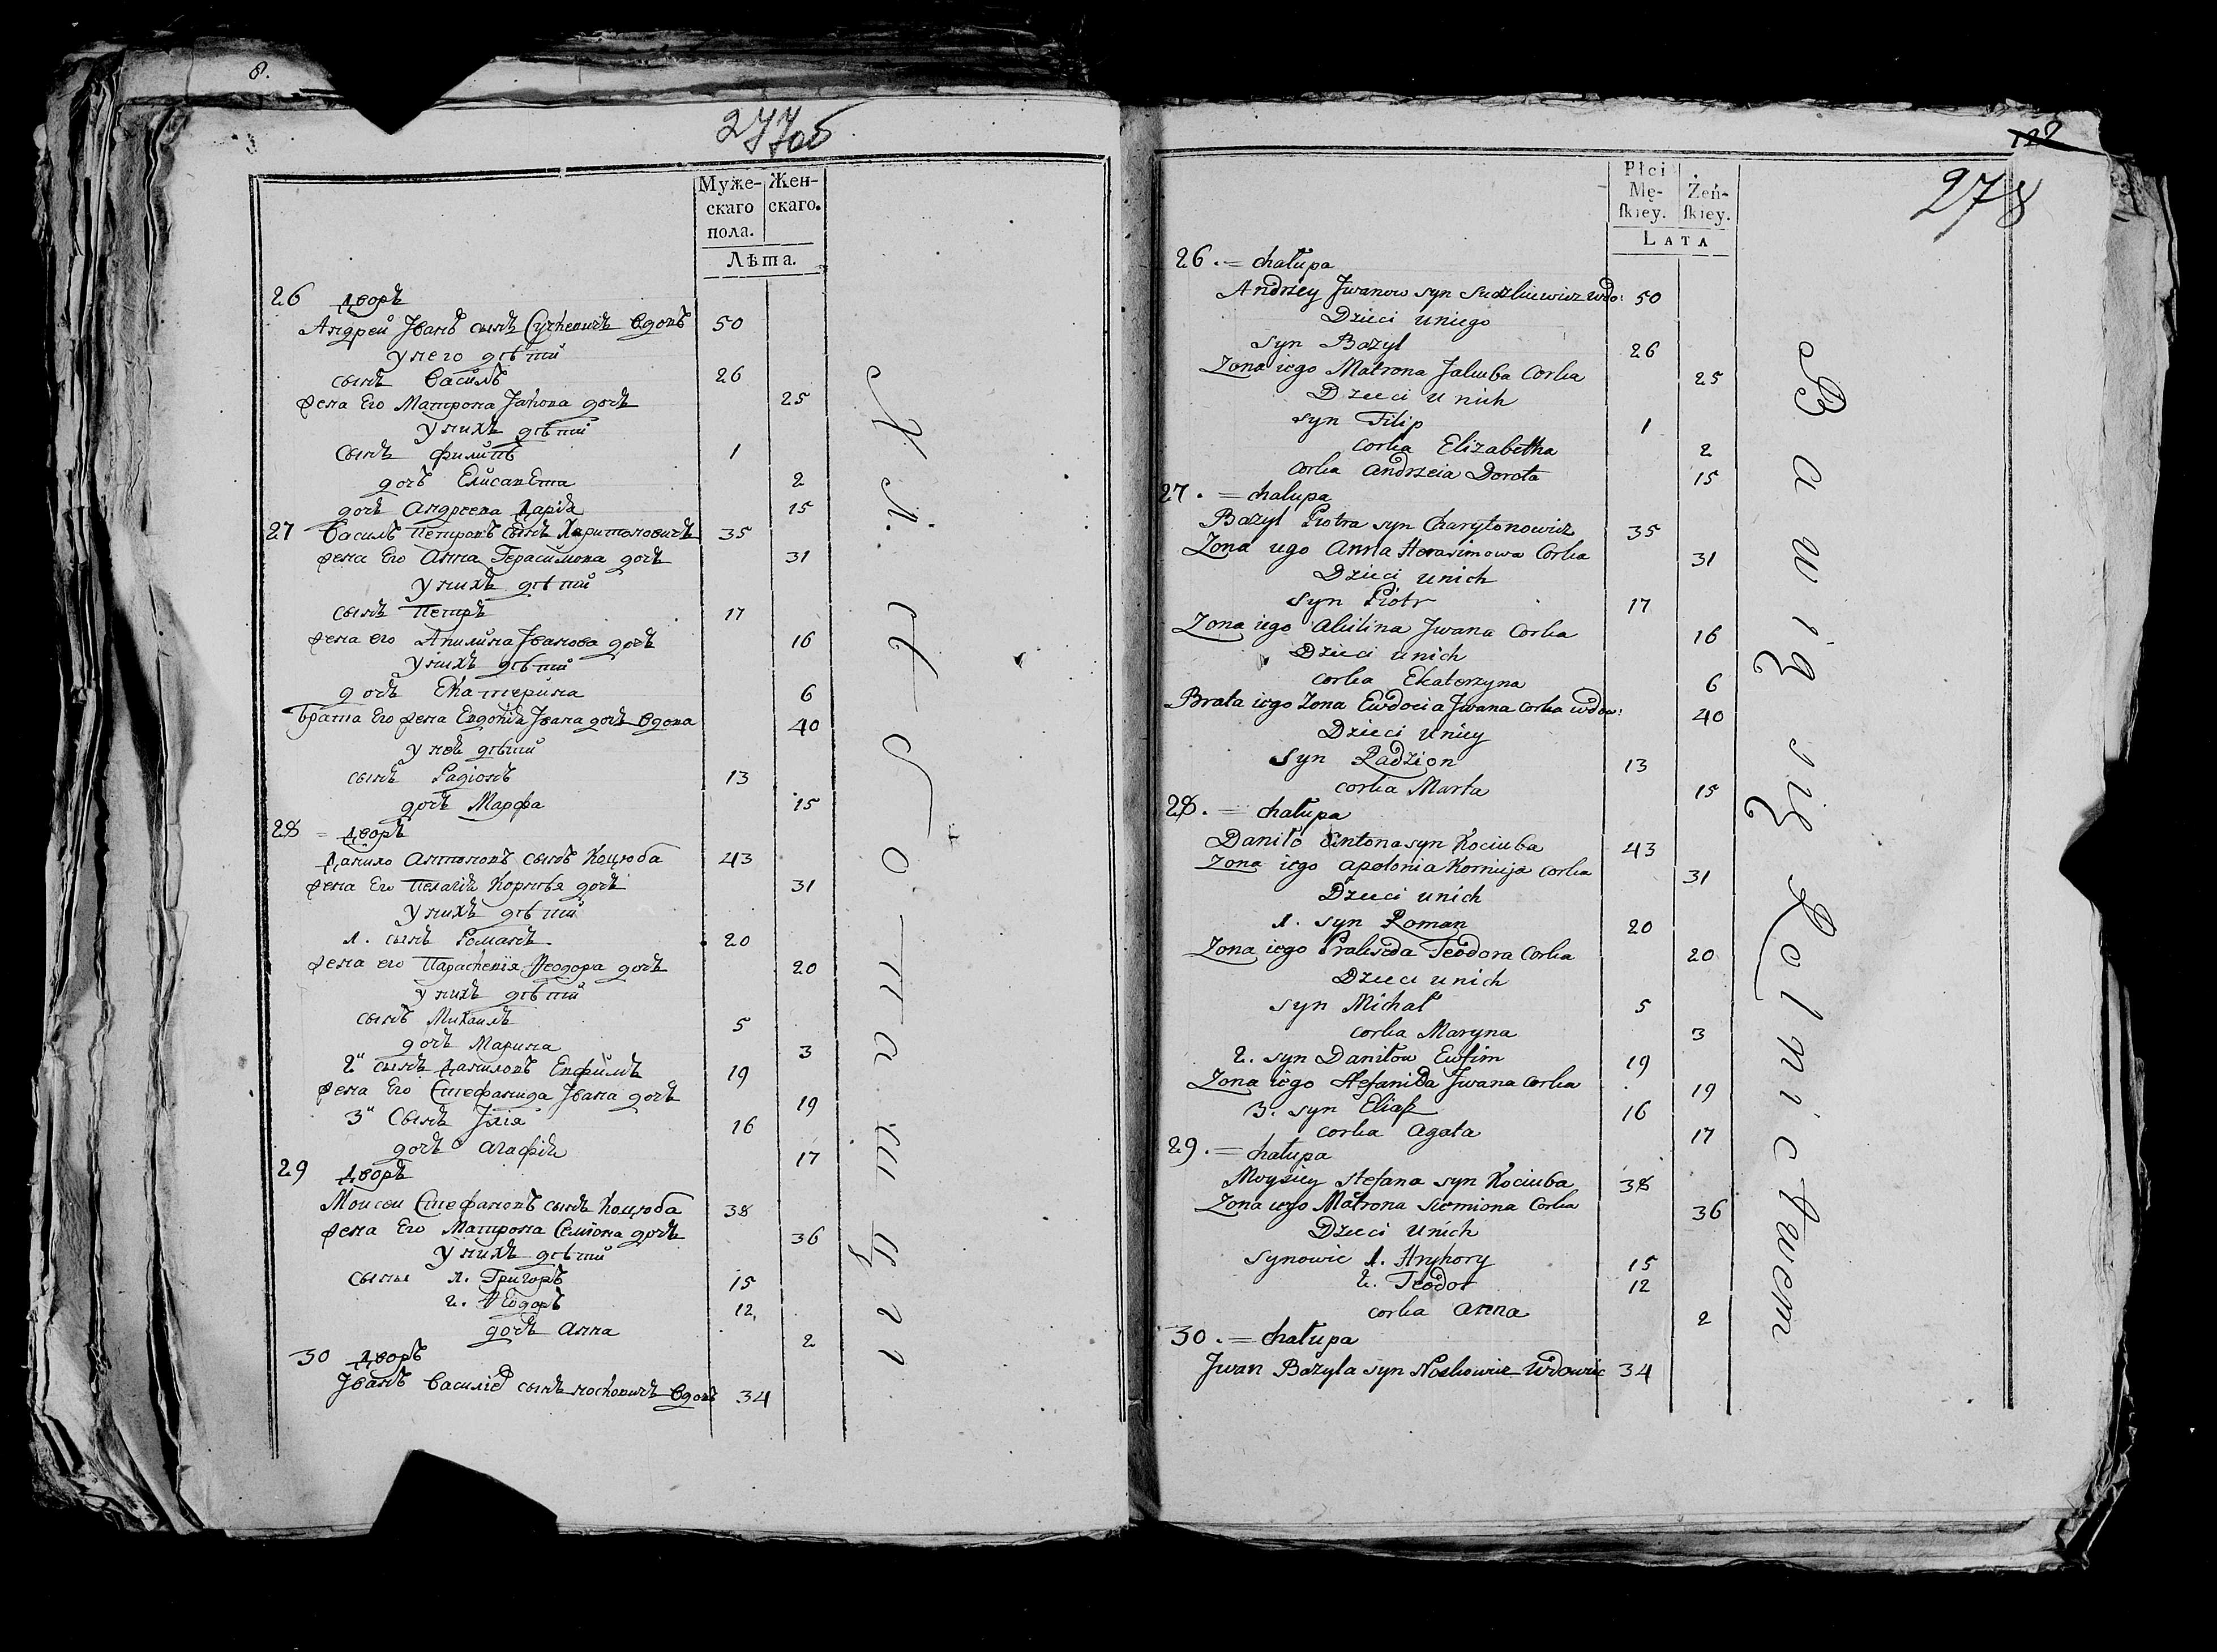 8.
277об
Муже-
скаго
пола.
Жен-
скаго.
Лѣта.
26 дворъ
Андрей Іванъ сынъ вдовъ 50
у него дѣти
сынъ Василь 26
жена Его Матрона Іакова дочь 25
у нихъ дѣти
сынъ Филипъ 1
дочь Елисавета 2
дочь Андреева Дарія 15
27 Василь Петровъ сынъ Харитоновичъ 35
жена Его Анна Герасимова дочь 31
у нихъ дѣти
сынъ Петръ 17
жена его Акилина Іванова дочь 16
у нихъ дѣти
дочь Екатерина 6
брата Его жена Евдокія Івана дочь вдова 40
у ней дѣти
сынъ Радіонъ 13
дочь Марфа 15
28 = дворъ
Данило Антоновъ сынъ Коцюба 43
жена Его Пелагія Корнѣя дочь 31
у нихъ дѣти
1. сынъ Романъ 20
жена его Параскевія Феодора дочь 20
у нихъ дѣти
сынъ Михаилъ 5
дочь Марина 3
2" сынъ Даниловъ Евфимъ 19
жена Его Стефанида Івана дочь 19
3" Сынъ Ілія 16
дочь Агафія 17
29 дворъ
Моисеи Стефановъ сынъ Коцюба 38
жена Его Матрона Семіона дочь 36
у нихъ дѣти
сыны 1. Григоръ 15
2. Феодоръ 12
дочь Анна 2
30 дворъ
Іванъ Василія сынъ Носковичъ вдовъ 34
122
278
Płci
Mę-
ſkiey.
Żeń-
ſkiey.
LATA
26. = chałupa
Andrzey Jwanow syn wdo: 50
Dzieci uniego
syn Bazyl 26
Zona iego Matrona Jakuba Corka 25
Dzieci unich
syn Filip 1
corka Elizabetha 2
corka Andrzeia Dorota 15
27. = chałupa
Bazyl Piotra syn Charytonowicz 35
Zona iego Anna Herasimowa Corka 31
Dzieci unich
syn Piotr 17
Zona iego Akilina Jwana Corka 16
Dzieci unich
corka Ekaterzyna 6
Brata iego Zona Ewdocia Jwana corka wdow: 40
Dzieci uniey
syn Radzion 13
corka Marta 15
28. = chałupa
Daniło Antona syn Kociuba 43
Zona iego Apolonia Kornieja corka 31
Dzieci unich
1. syn Roman 20
Zona iego Prakseda Teodora Corka 20
Dzieci unich
syn Michał 5
corka Maryna 3
2. syn Daniłow Ewfim 19
Zona iego Stefanida Jwana corka 19
3. syn Eliaſz 16
corka Agata 17
29. = chałupa
Moyżiey Stefana syn Kociuba 38
Zona iego Matrona Siemiona Corka 36
Dzieci unich
synowie 1. Hryhory 15
2. Teodor 12
corka Anna 2
30. = chałupa
Jwan Bazyla syn Noskowicz Wdowiec 34
Bawią się Rolnictwem